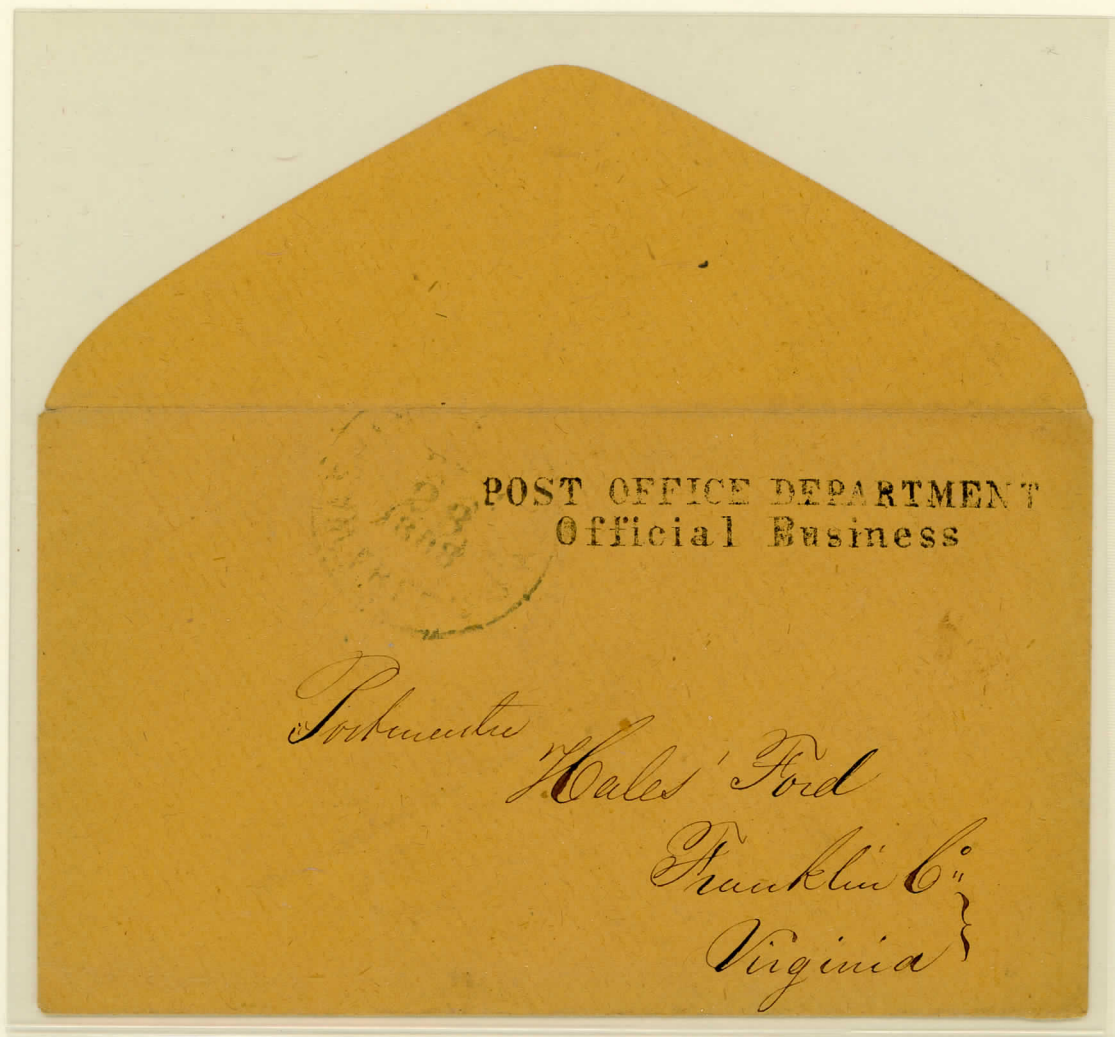 POST OFFICE DEPARTMENT
Official Business
Postmaster
Hales' Ford
Franklin Co
Virginia